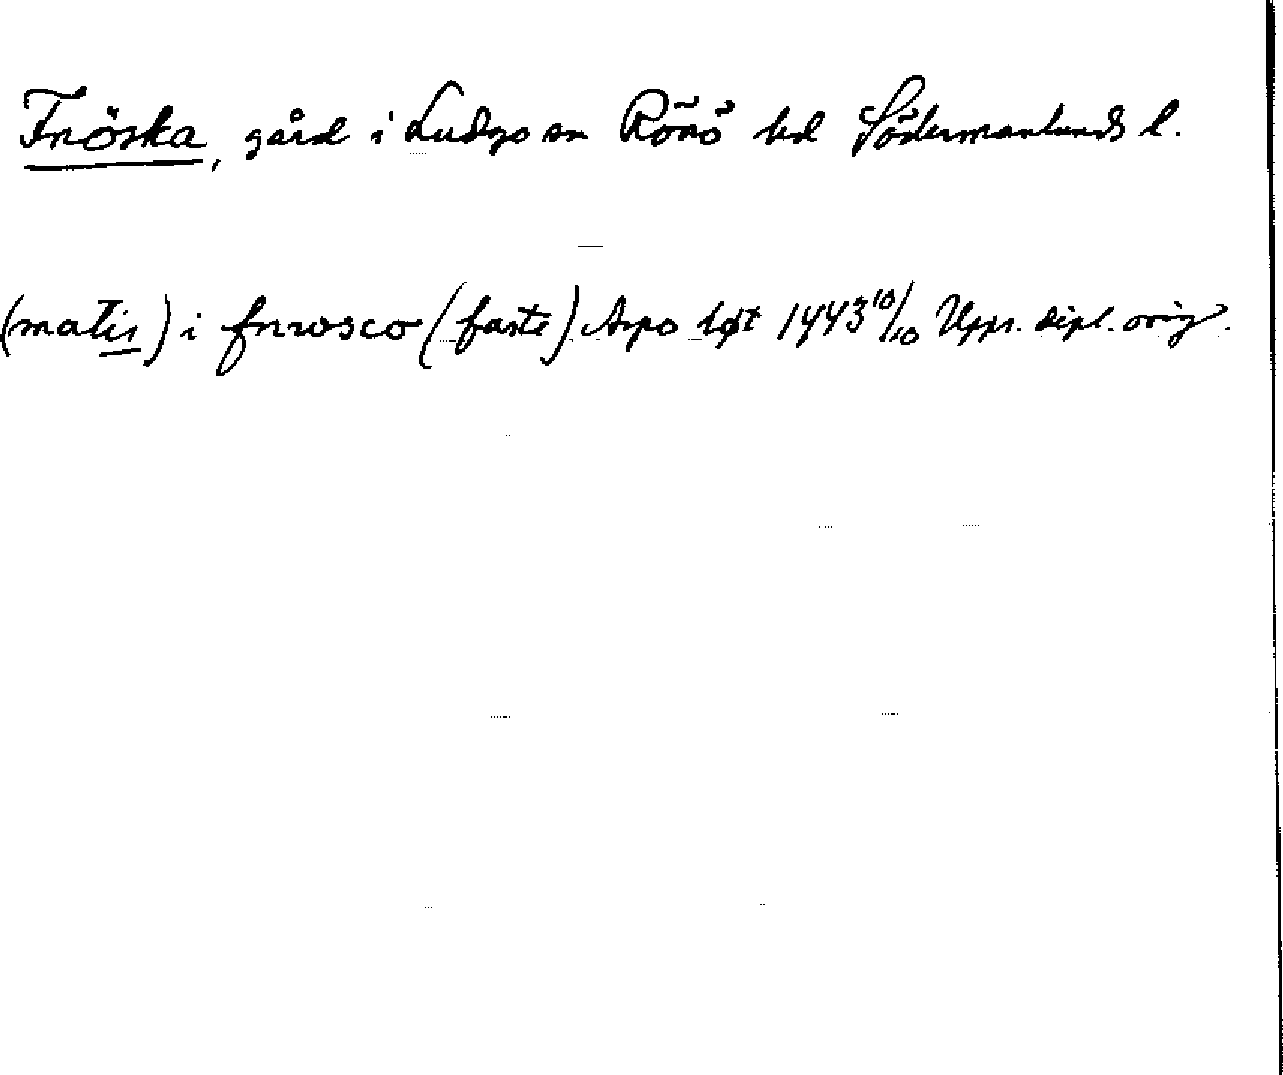 Fnöska, gård i Ludgo sn Rönö hd Södermanlands l.
(matis) i fnwsco (faste) Arpo 1443 10/10 Upps. dipl. orig.